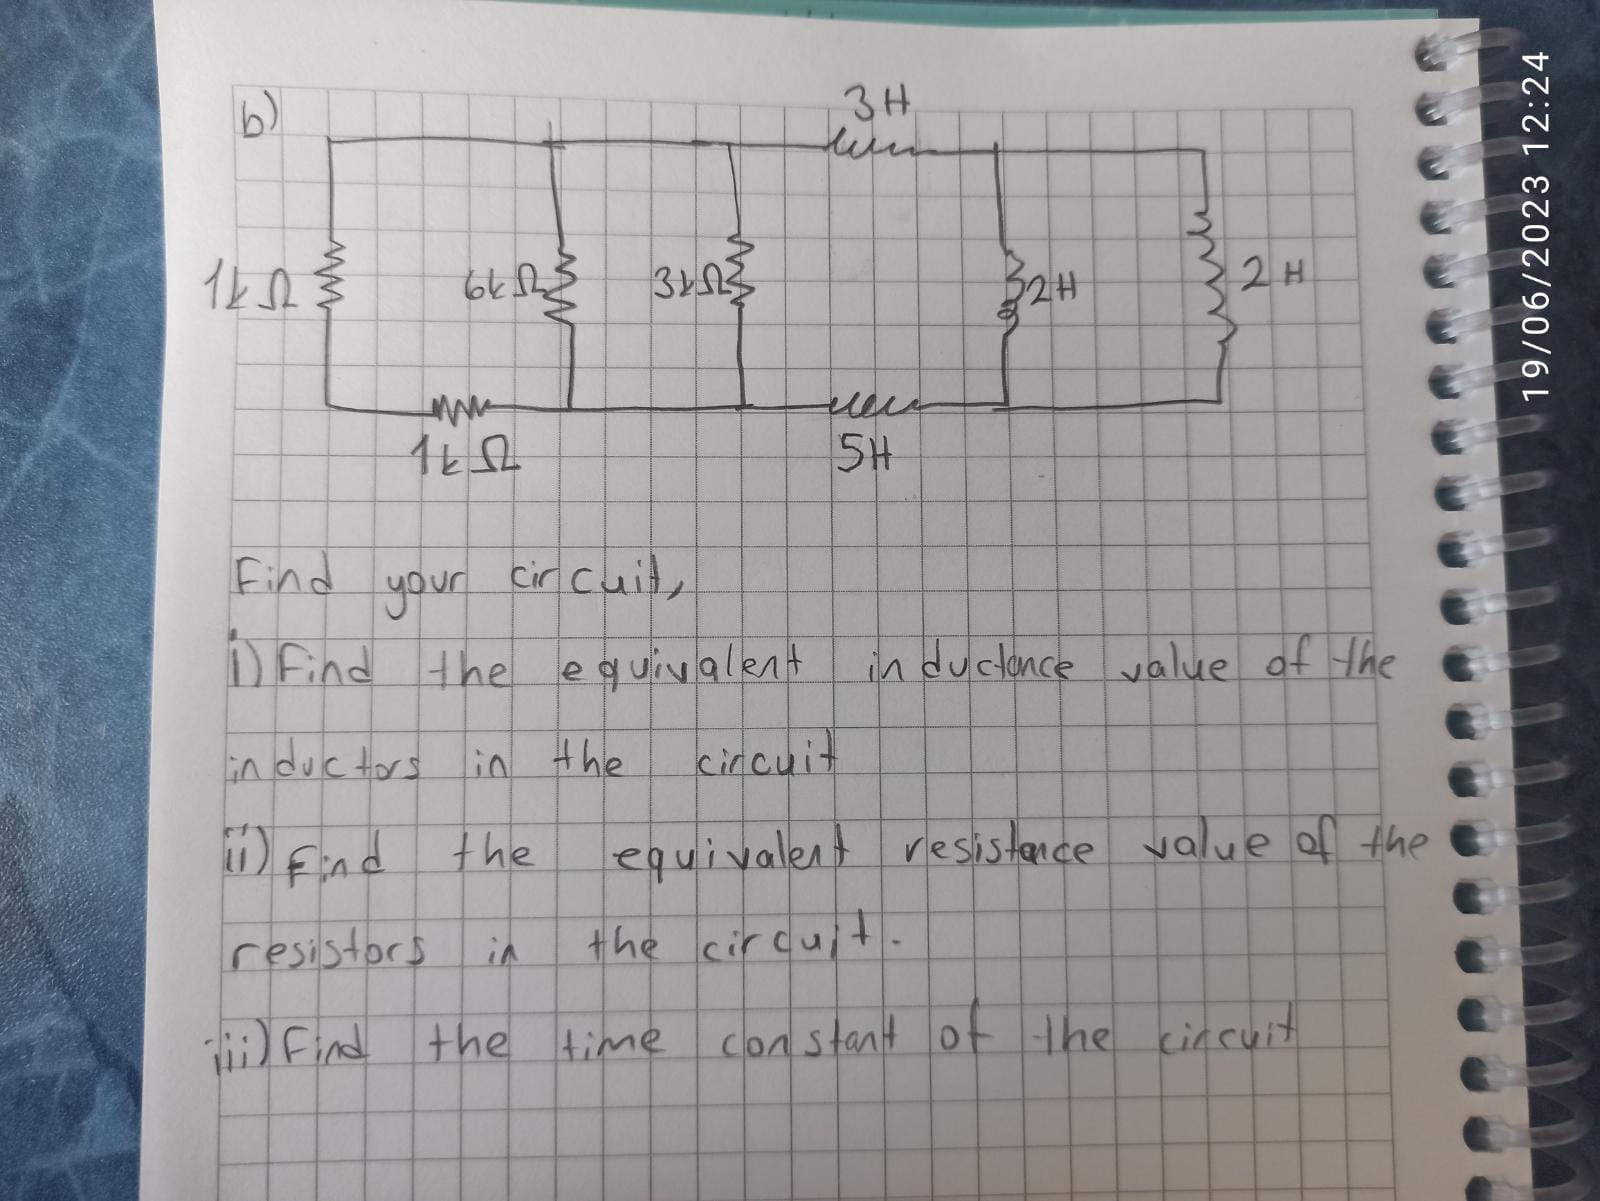 b)
3H
1kΩ
6kΩ
3kΩ
2H
2H
1kΩ
5H
Find your circuit,
i) Find the equivalent inductance value of the
inductors in the circuit
ii) Find the equivalent resistance value of the
resistors in the circuit.
iii) Find the time constant of the circuit
19/06/2023 12:24